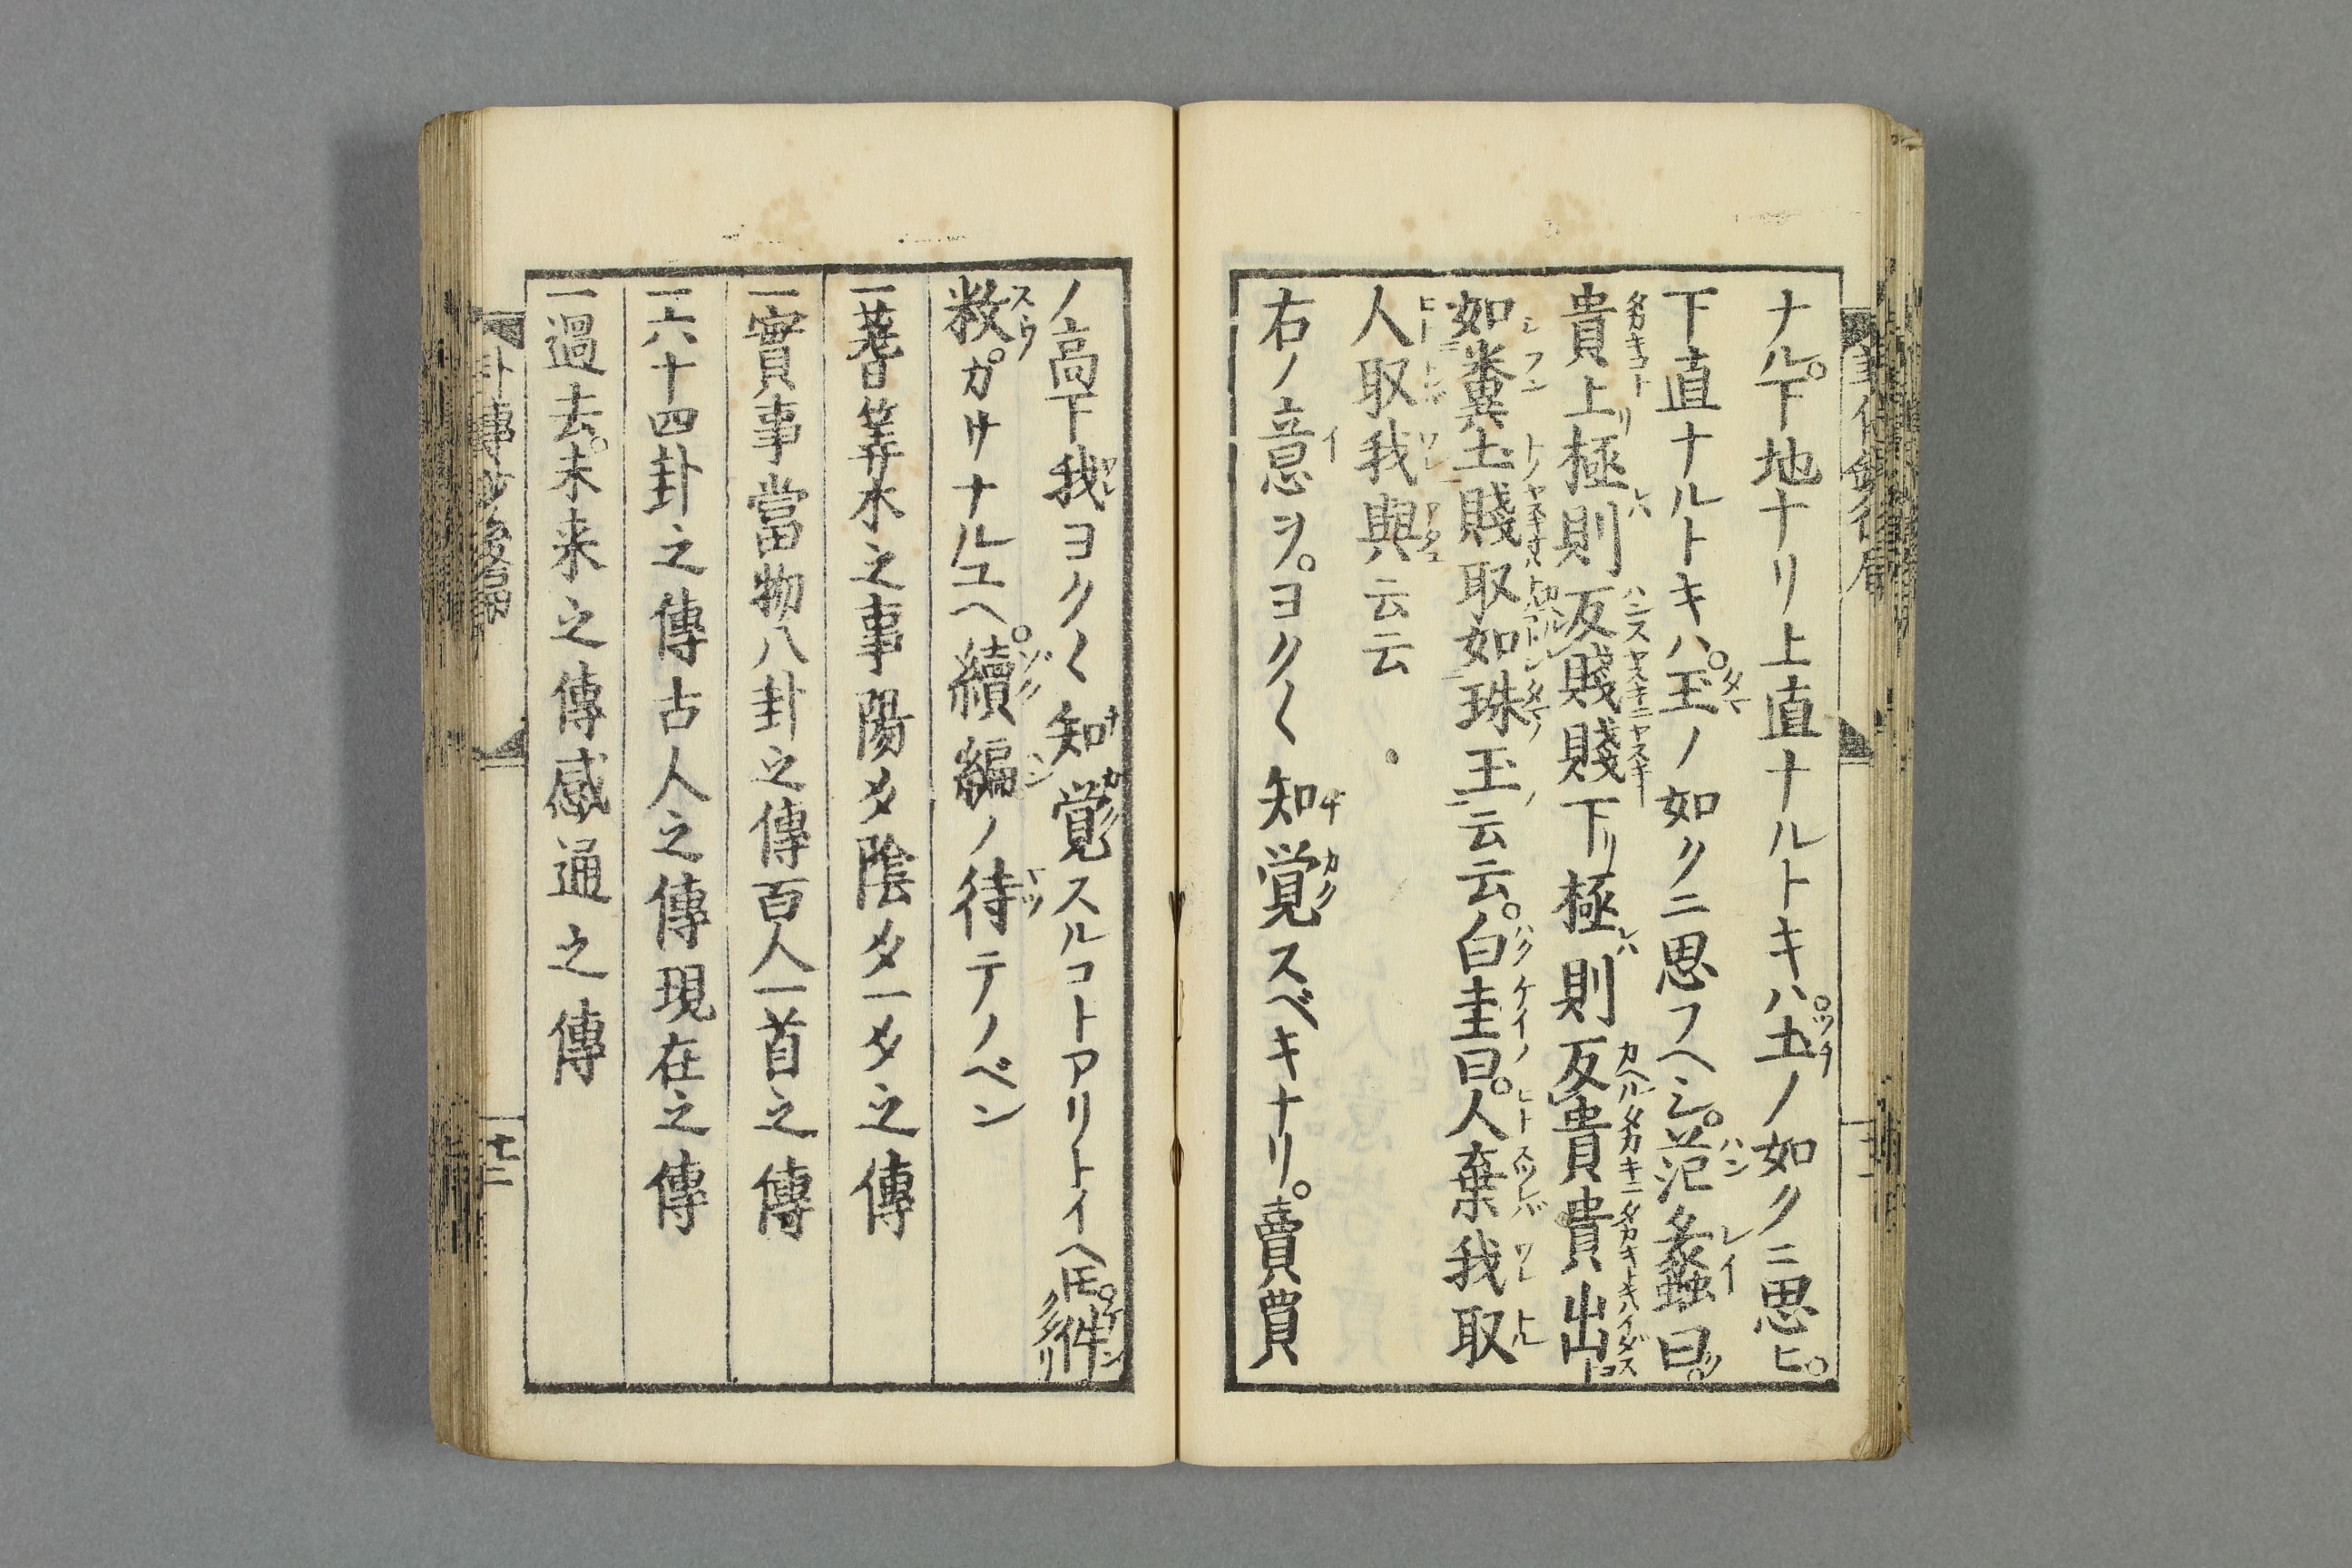 ナル。下地ナリ上直ナルトキハ。土ノ如クニ思ヒ。
下直ナルトキハ。玉ノ如クニ思フヘシ。范蠡曰。
貴上極則反賤賤下極則反貴貴出
如糞土賤取如珠玉云云。白圭曰。人棄我取
人取我與云云
右ノ意ヲ。ヨク〱知覚スベキナリ。賣買
ノ高下我ヨク〱知覚スルコトアリトイヘ𪜈。件
数ガサナルユヘ。續編ノ待テノベン
一蓍筭木之事陽爻陰爻一爻之傳
一實事當物八卦之傳百人一首之傳
一六十四卦之傳古人之傳現在之傳
一過去。未来之傳感通之傳
十二